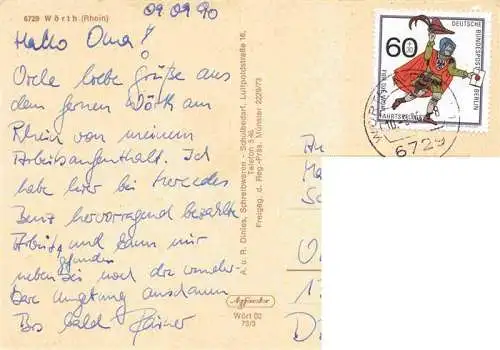 6729 Wörth (Rhein)
09.09.90
Hallo Oma!
Viele liebe Grüße aus
dem fernen Wörth am
Rhein von meinem
Arbeitsaufenthalt. Ich
habe hier bei Mercedes
Benz hervorragend bezahlte
Arbeit gefunden und kann mir
nebenbei noch die wunder-
bare Umgebung anschauen
Bis bald Rainer
A. u. R. Dinies, Schreibwaren - Schulbedarf, Luitpoldstraße 16,
Telefon 546
Freigeg. d. Reg.-Präs. Münster 2229/73
Wört 02
73/3
60
DEUTSCHE BUNDESPOST
BERLIN
FÜR DIE WOHLFAHRTSPFLEGE
6729